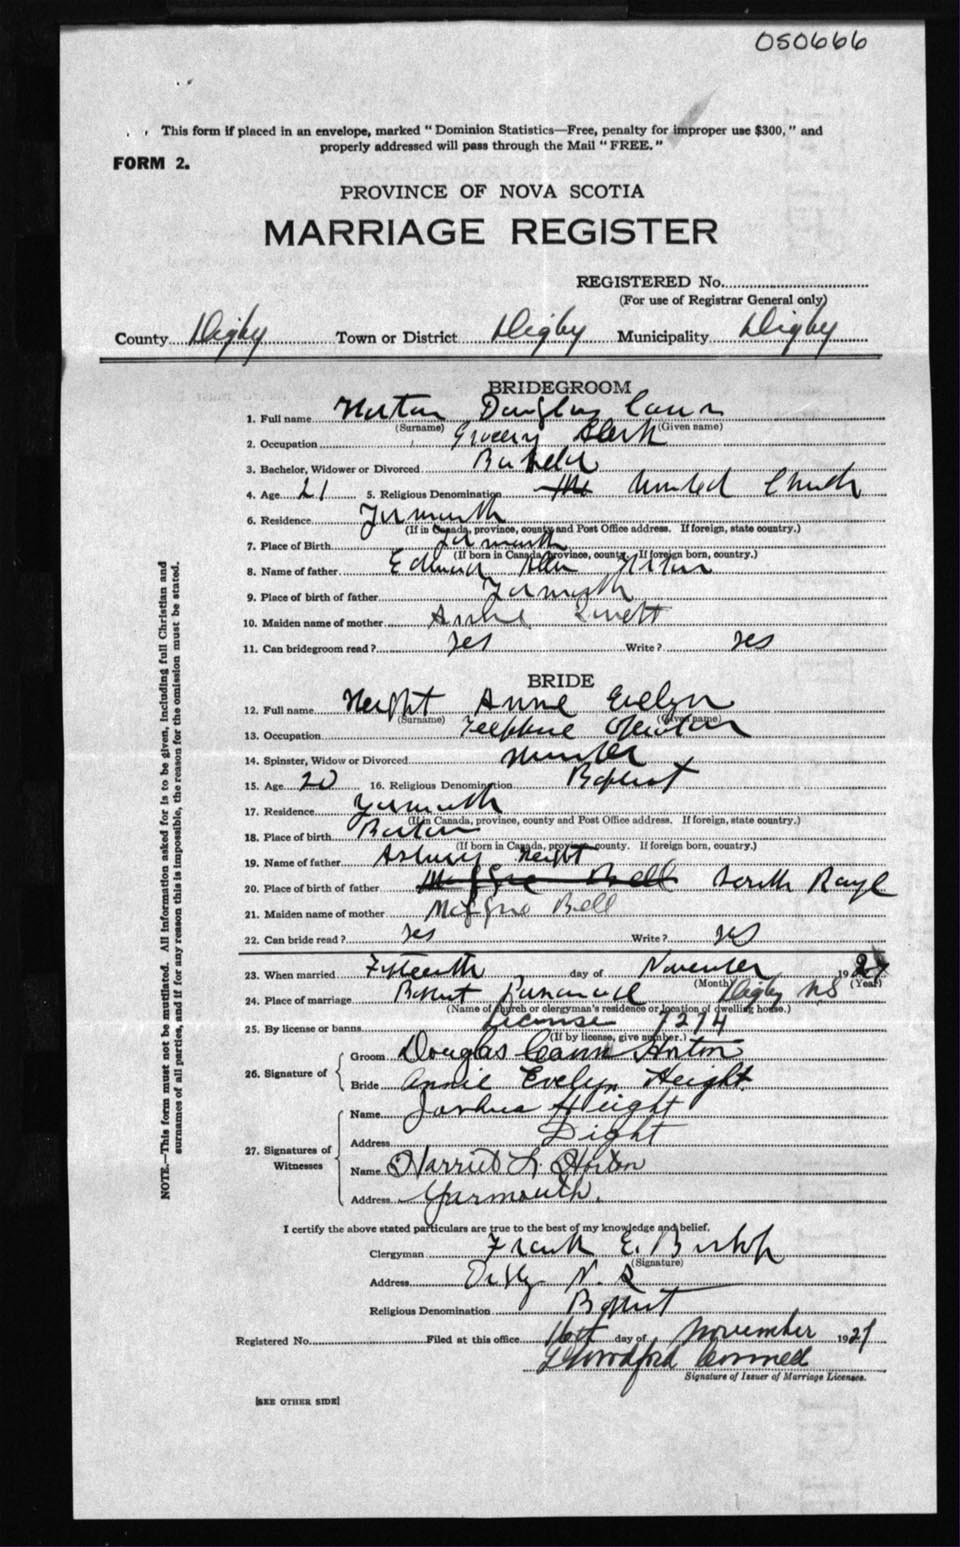 050666
This form if placed in an envelope, marked "Dominion Statistics—Free, penalty for improper use $300," and
properly addressed will pass through the Mail "FREE."
FORM 2.
PROVINCE OF NOVA SCOTIA
MARRIAGE REGISTER
REGISTERED No.
(For use of Registrar General only)
County Digby Town or District Digby Municipality Digby
BRIDEGROOM
1. Full name Horton Douglas Cann
(Surname) (Given name)
2. Occupation Grocery Clerk
3. Bachelor, Widower or Divorced Bachelor
4. Age 21 5. Religious Denomination The United Church
6. Residence Yarmouth
(If in Canada, province, county and Post Office address. If foreign, state country.)
7. Place of Birth Yarmouth
(If born in Canada, province, county. If foreign born, country.)
8. Name of father Edward Allen Horton
9. Place of birth of father Yarmouth
10. Maiden name of mother
11. Can bridegroom read? Yes Write? Yes
BRIDE
12. Full name Height Annie Evelyn
(Surname) (Given name)
13. Occupation Telephone Operator
14. Spinster, Widow or Divorced
15. Age 20 16. Religious Denomination Baptist
17. Residence Yarmouth
(If in Canada, province, county and Post Office address. If foreign, state country.)
18. Place of birth Barton
(If born in Canada, province, county. If foreign born, country.)
19. Name of father Asbury Height
20. Place of birth of father Maggie Bell North Range
21. Maiden name of mother Maggie Bell
22. Can bride read? Yes Write? Yes
23. When married Fifteenth day of November 192
(Month) (Year)
24. Place of marriage Baptist Parsonage Digby N.S
(Name of church or clergyman's residence or location of dwelling house.)
25. By license or banns License 7274
(If by license, give number.)
26. Signature of
Groom Douglas Cann Horton
Bride Annie Evelyn Height
27. Signatures of Witnesses
Name Joshua Height
Address
Name Harriet L. Horton
Address Yarmouth.
I certify the above stated particulars are true to the best of my knowledge and belief.
Clergyman Frank E. Bishop
(Signature)
Address Digby N. S
Religious Denomination Baptist
Registered No. Filed at this office 16th day of November 1927
Signature of Issuer of Marriage Licenses.
[SEE OTHER SIDE]
NOTE.—This form must not be mutilated. All information asked for is to be given, including full Christian and
surnames of all parties, and if for any reason this is impossible, the reason for the omission must be stated.